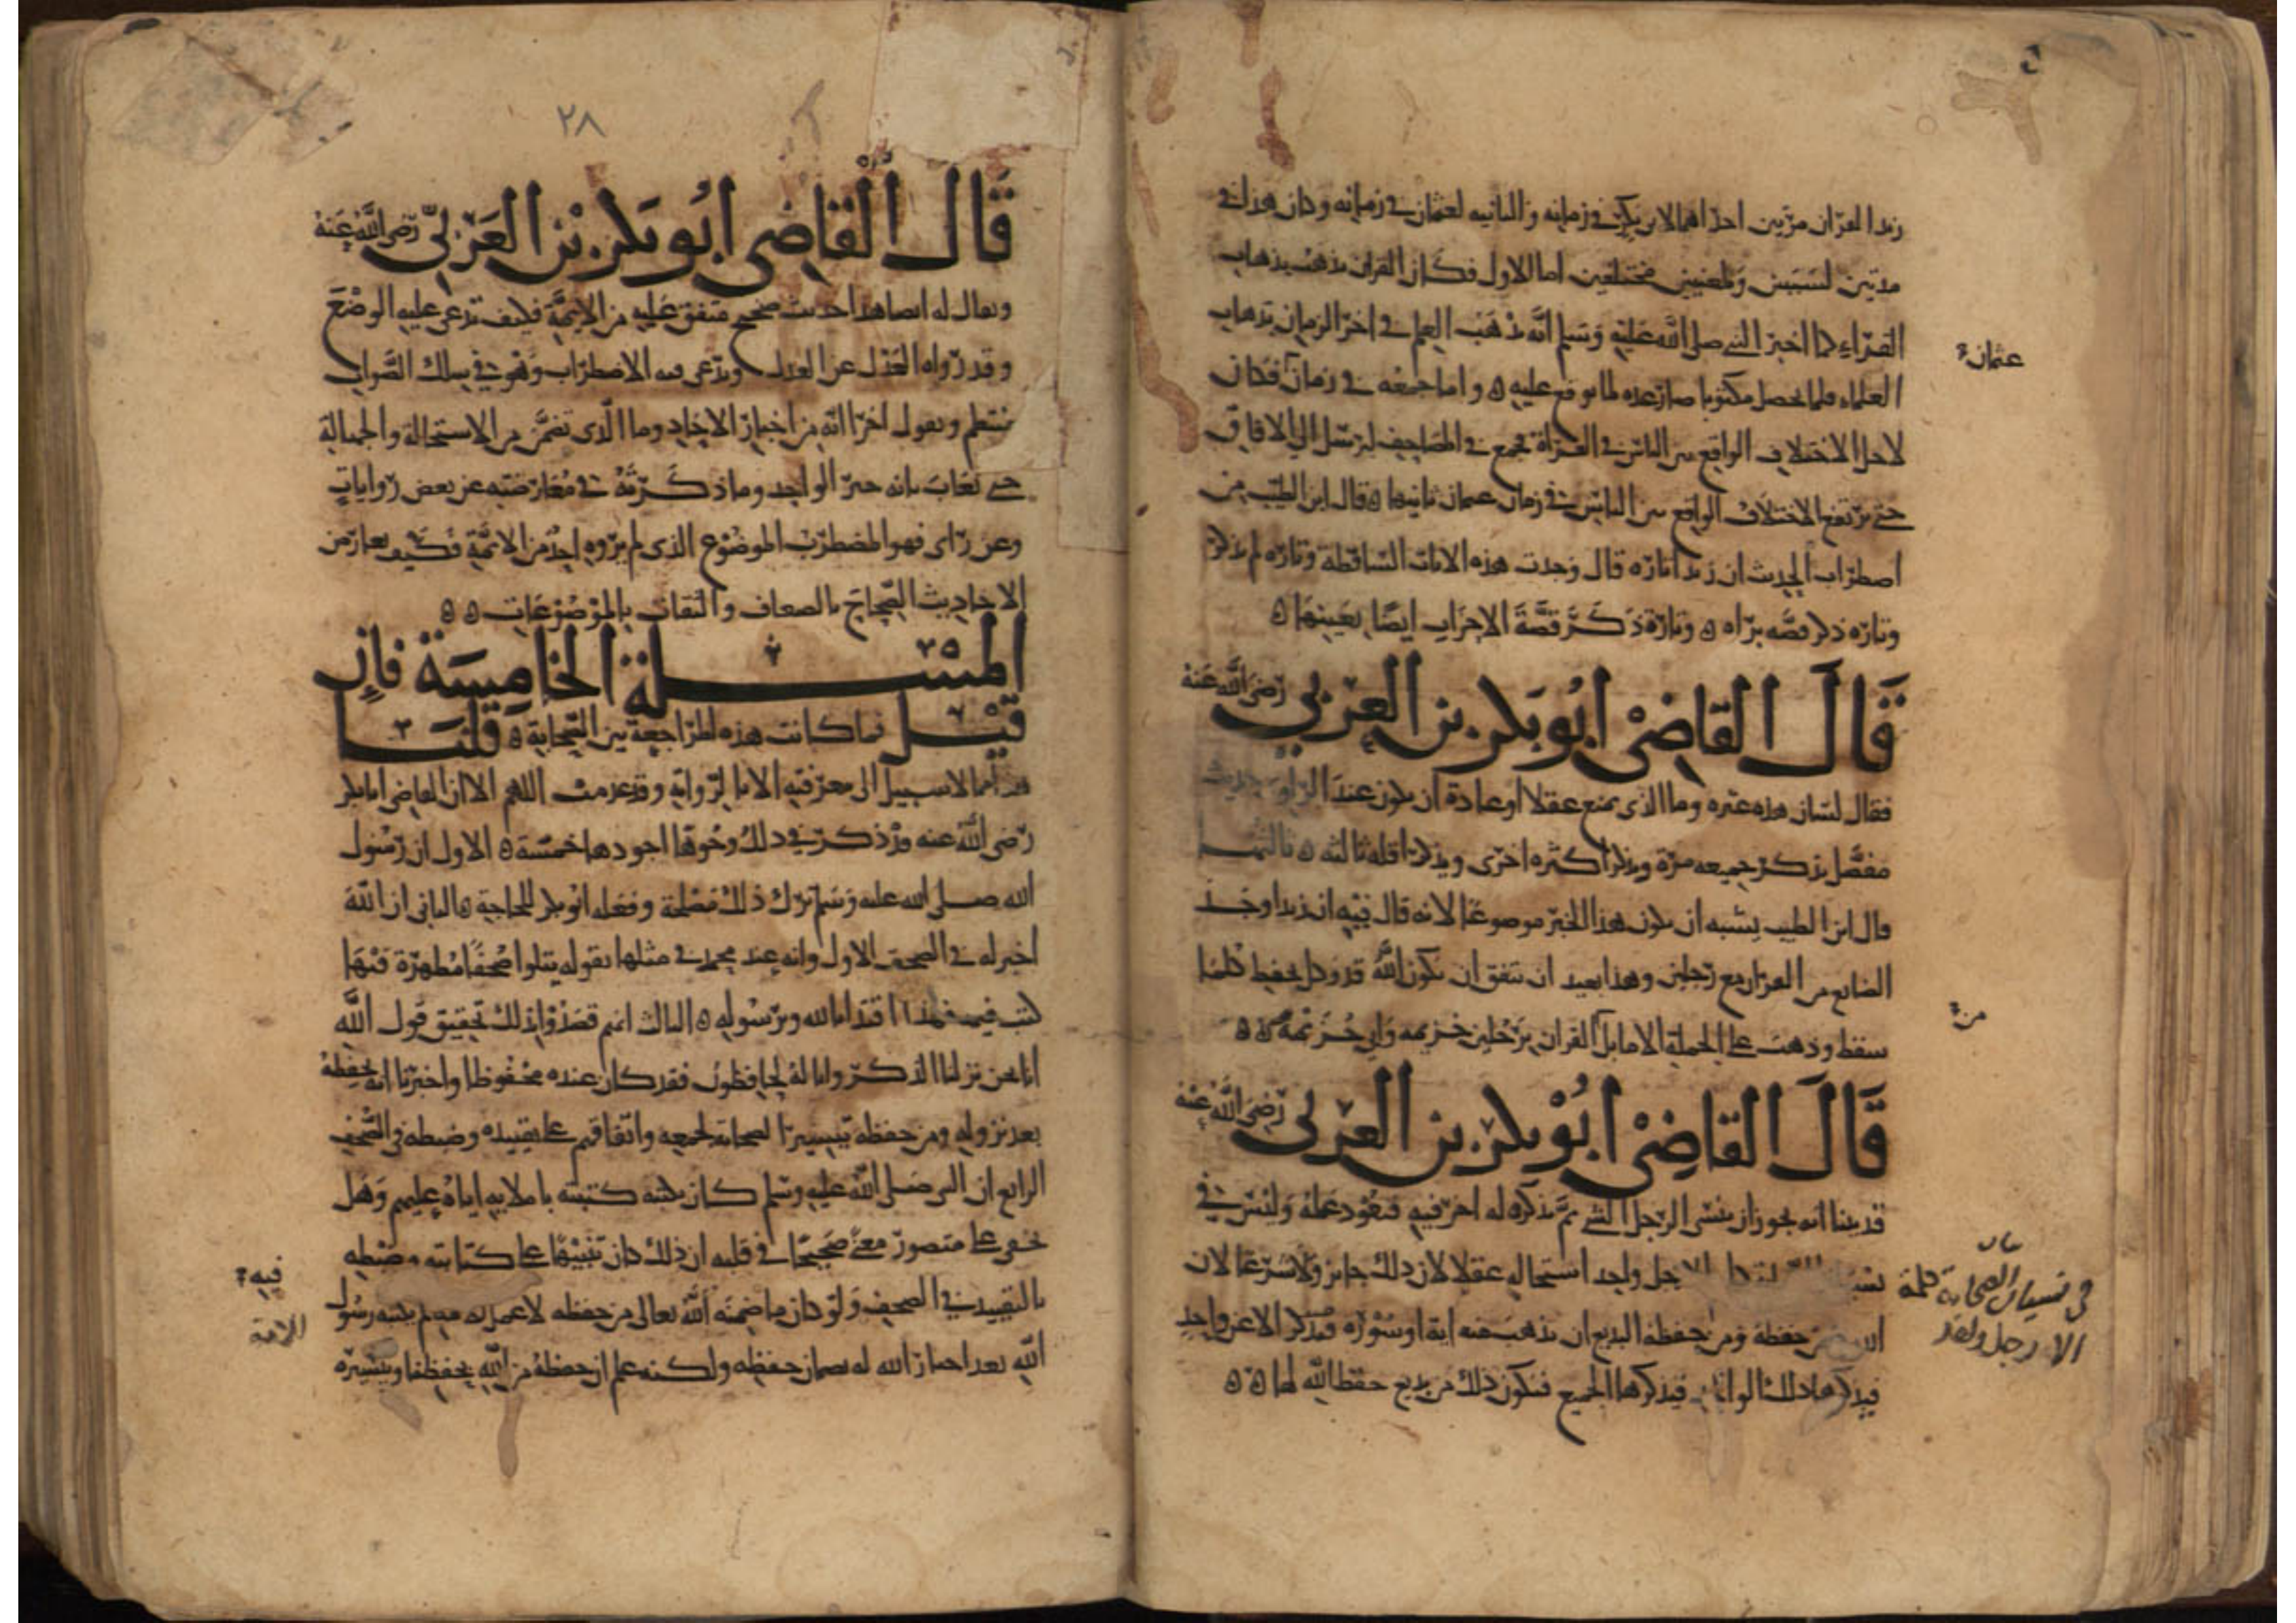 زيد القران مرتين احداهما لابي بكر في زمانه والثانيه لعثمان في زمانه وكان هذا في
مرتين لسببين ولمعنيين مختلفين اما الاول فكان القران يذهب بذهاب
القراء كما اخبر النبي صلى الله عليه وسلم انه يذهب العلم في اخر الزمان بذهاب
عثمان
العلماء فلما تحصل مكتوبا صار عده لما يوقع عليه ه واما جمعه في زمان فكان
لاجل الاختلاف الواقع بين الناس في القراة فجمع في المصاحف لترسل الى الافاق
حتى يرتفع الاختلاف الواقع بين الناس في زمان عثمان ثانيها ه قال ابن الطيب من
اضطراب الحديث ان زيدا تارة قال وجدت هذه الايات الساقطة وتارة لم يذكر
وتارة ذكر قصه براه ه وتارة ذكر قصة الاحزاب ايضا بعينها ه
قال القاضي ابو بكر بن العربي رضي الله عنه
فقال لسان هذه عثره وما الذي يمنع عقلا او عادة ان يكون عند الراوي حديث
مفصل يذكر جميعه مرة ويذكر اكثره اخرى ويذكر اقله ثالثه ه ثالثها
قال ابن الطيب يشبه ان يكون هذا الخبر موضوعا لانه قال فيه ان زيدا وجد
الضايع من القران مع رجلين وهذا بعيد ان يتفق ان يكون الله قد وكل بحفظ كلما
من
سقط وذهب على الجملة الاماثل القران برجلين خزيمه وابي خزيمه ه ه
قال القاضي ابو بكر بن العربي رضي الله عنه
قد بينا انه يجوز ان ينسى الرجل الشي ثم يذكره له اخر فيعود علمه وليس في
نسيان الصحابة كلمة الا رجل واحد استحاله عقلا لان ذلك جايز ولا شرعا لان
في نسيان الصحابة كلمة
الا رجل واحد
الله حفظه ومن حفظه البديع ان تذهب منه اية او سورة فيذكر الا عن واحد
فيذكرها ذلك الواحد فيذكرها الجميع فيكون ذلك من بديع حفظ الله لها ه ه
٢٨
قال القاضي ابو بكر بن العربي رضي الله عنه
ويقال له ايضا هذا حديث صحيح متفق عليه من الايمة فكيف تدعي عليه الوضع
وقد رواه العدل عن العدل وتدعي فيه الاضطراب وهو في سلك الصواب
منتظم وتقول اخرا انه من اخبار الاحاد وما الذي تضمن من الاستحالة والجهالة
حتى يعاب بانه خبر الواحد وما ذكرته في معارضته عن بعض روايات
وعن راي فهو المضطرب الموضوع الذي لم يروه احد من الايمة فكيف يعارض
الاحاديث الصحاح بالضعاف والثقات بالموضوعات ه ه
المسئلة الخامسة فان
قيل فما كانت هذه المراجعة بين الصحابة ه قلنا
هذا مما لا سبيل الى معرفته الا بالرواية وقد عدمت اللهم الا ان القاضي ابا بكر
رضي الله عنه قد ذكر في ذلك وجوها اجودها خمسة ه الاول ان رسول
الله صلى الله عليه وسلم ترك ذلك مصلحة وفعله ابو بكر للحاجة ه الثاني ان الله
اخبر انه في الصحف الاولى وانه عند محمد في مثلها بقوله يتلوا صحفا مطهرة فيها
كتب قيمة فهذا اقتدا بالله وبرسوله ه الثالث انهم قصدوا بذلك تحقيق قول الله
انا نحن نزلنا الذكر وانا له لحافظون فقد كان عنده محفوظا واخبرنا انه يحفظه
بعد نزوله ومن حفظه تيسير الصحابة لجمعه واتفاقهم على تقييده وضبطه في الصحف
الرابع ان النبي صلى الله عليه وسلم كان يكتبه كتبته باملايه اياه عليهم وهل
يخفى على متصور معنى صحيحا في قلبه ان ذلك كان تنبيها على كتابته وضبطه
فيه
بالتقييد في الصحف ولو كان ما ضمنه الله تعالى من حفظه لا عمل للامة فيه لم يكتبه رسول
للامة
الله بعد اخبار الله له بضمان حفظه ولكنه علم ان حفظه من الله بحفظنا وتيسيره